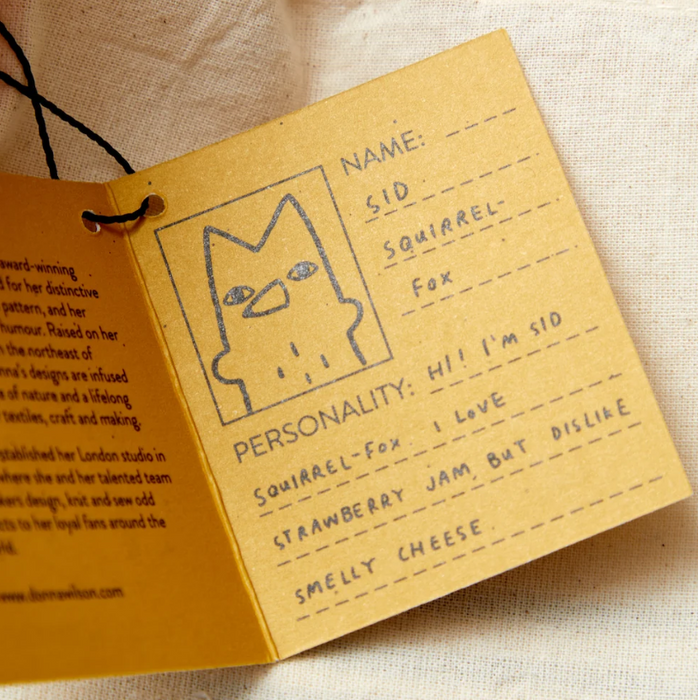 award-winning
d for her distinctive
pattern, and her
humour. Raised on her
n the northeast of
nna's designs are infused
e of nature and a lifelong
textiles, craft and making.
stablished her London studio in
where she and her talented team
kers design, knit and sew odd
cts to her loyal fans around the
rld.
www.donnawilson.com
NAME:
SID
SQUIRREL-
FOX
PERSONALITY: HI! I'M SID
SQUIRREL-FOX. I LOVE
STRAWBERRY JAM BUT DISLIKE
SMELLY CHEESE.